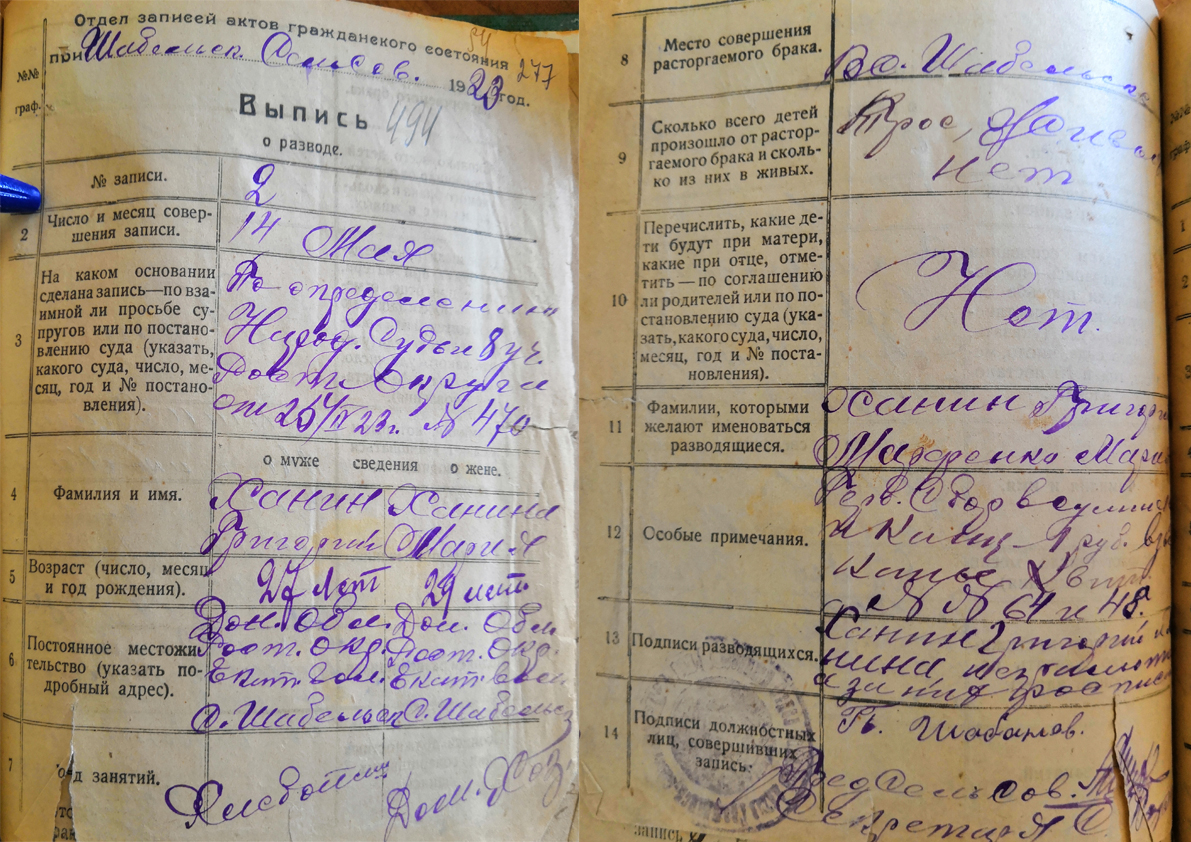 Отдел записей актов гражданского состояния
при Шабельск. Сельсов. 1923 год.
54
277
№№
граф.
Выпись
494
о разводе.
№ записи.
2
2
Число и месяц совер-
шения записи.
14 Мая
3
На каком основании
сделана запись—по вза-
имной ли просьбе су-
пругов или по постано-
влению суда (указать,
какого суда, число, ме-
сяц, год и № постано-
вления).
По определению
Народ. Судьи 8 уч.
Дост. Округа
23г. № 470
о муже сведения о жене.
4
Фамилия и имя.
Ханин Ханина
Григорий Мария
5
Возраст (число, месяц
и год рождения).
27 лет 29 лет
6
Постоянное местожи-
тельство (указать по-
дробный адрес).
Дон. Обл. Дон. Обл
Рост. Окр. Рост. Окр.
Екат. Вол. Екат. Вол
с. Шабельск с. Шабельск
7
од занятий.
Хлебопаш
Дом. Хоз.
8
Место совершения
расторгаемого брака.
Шабельск
9
Сколько всего детей
произошло от растор-
гаемого брака и сколь-
ко из них в живых.
Трое,
нет
10
Перечислить, какие де-
ти будут при матери,
какие при отце, отме-
тить — по соглашению
ли родителей или по по-
становлению суда (ука-
зать, какого суда, число,
месяц, год и № поста-
новления).
Нет.
11
Фамилии, которыми
желают именоваться
разводящиеся.
Ханин Григори
Макаренко Мари
12
Особые примечания.
Герб. Сбор в сумме
1 руб.
Квит.
№ № 64 и 48.
13
Подписи разводящихся.
Ханин Григорий
14
Подписи должностных
лиц, совершивших
запись:
Шабанов.
Пред Сельсов.
Секретарь
запись